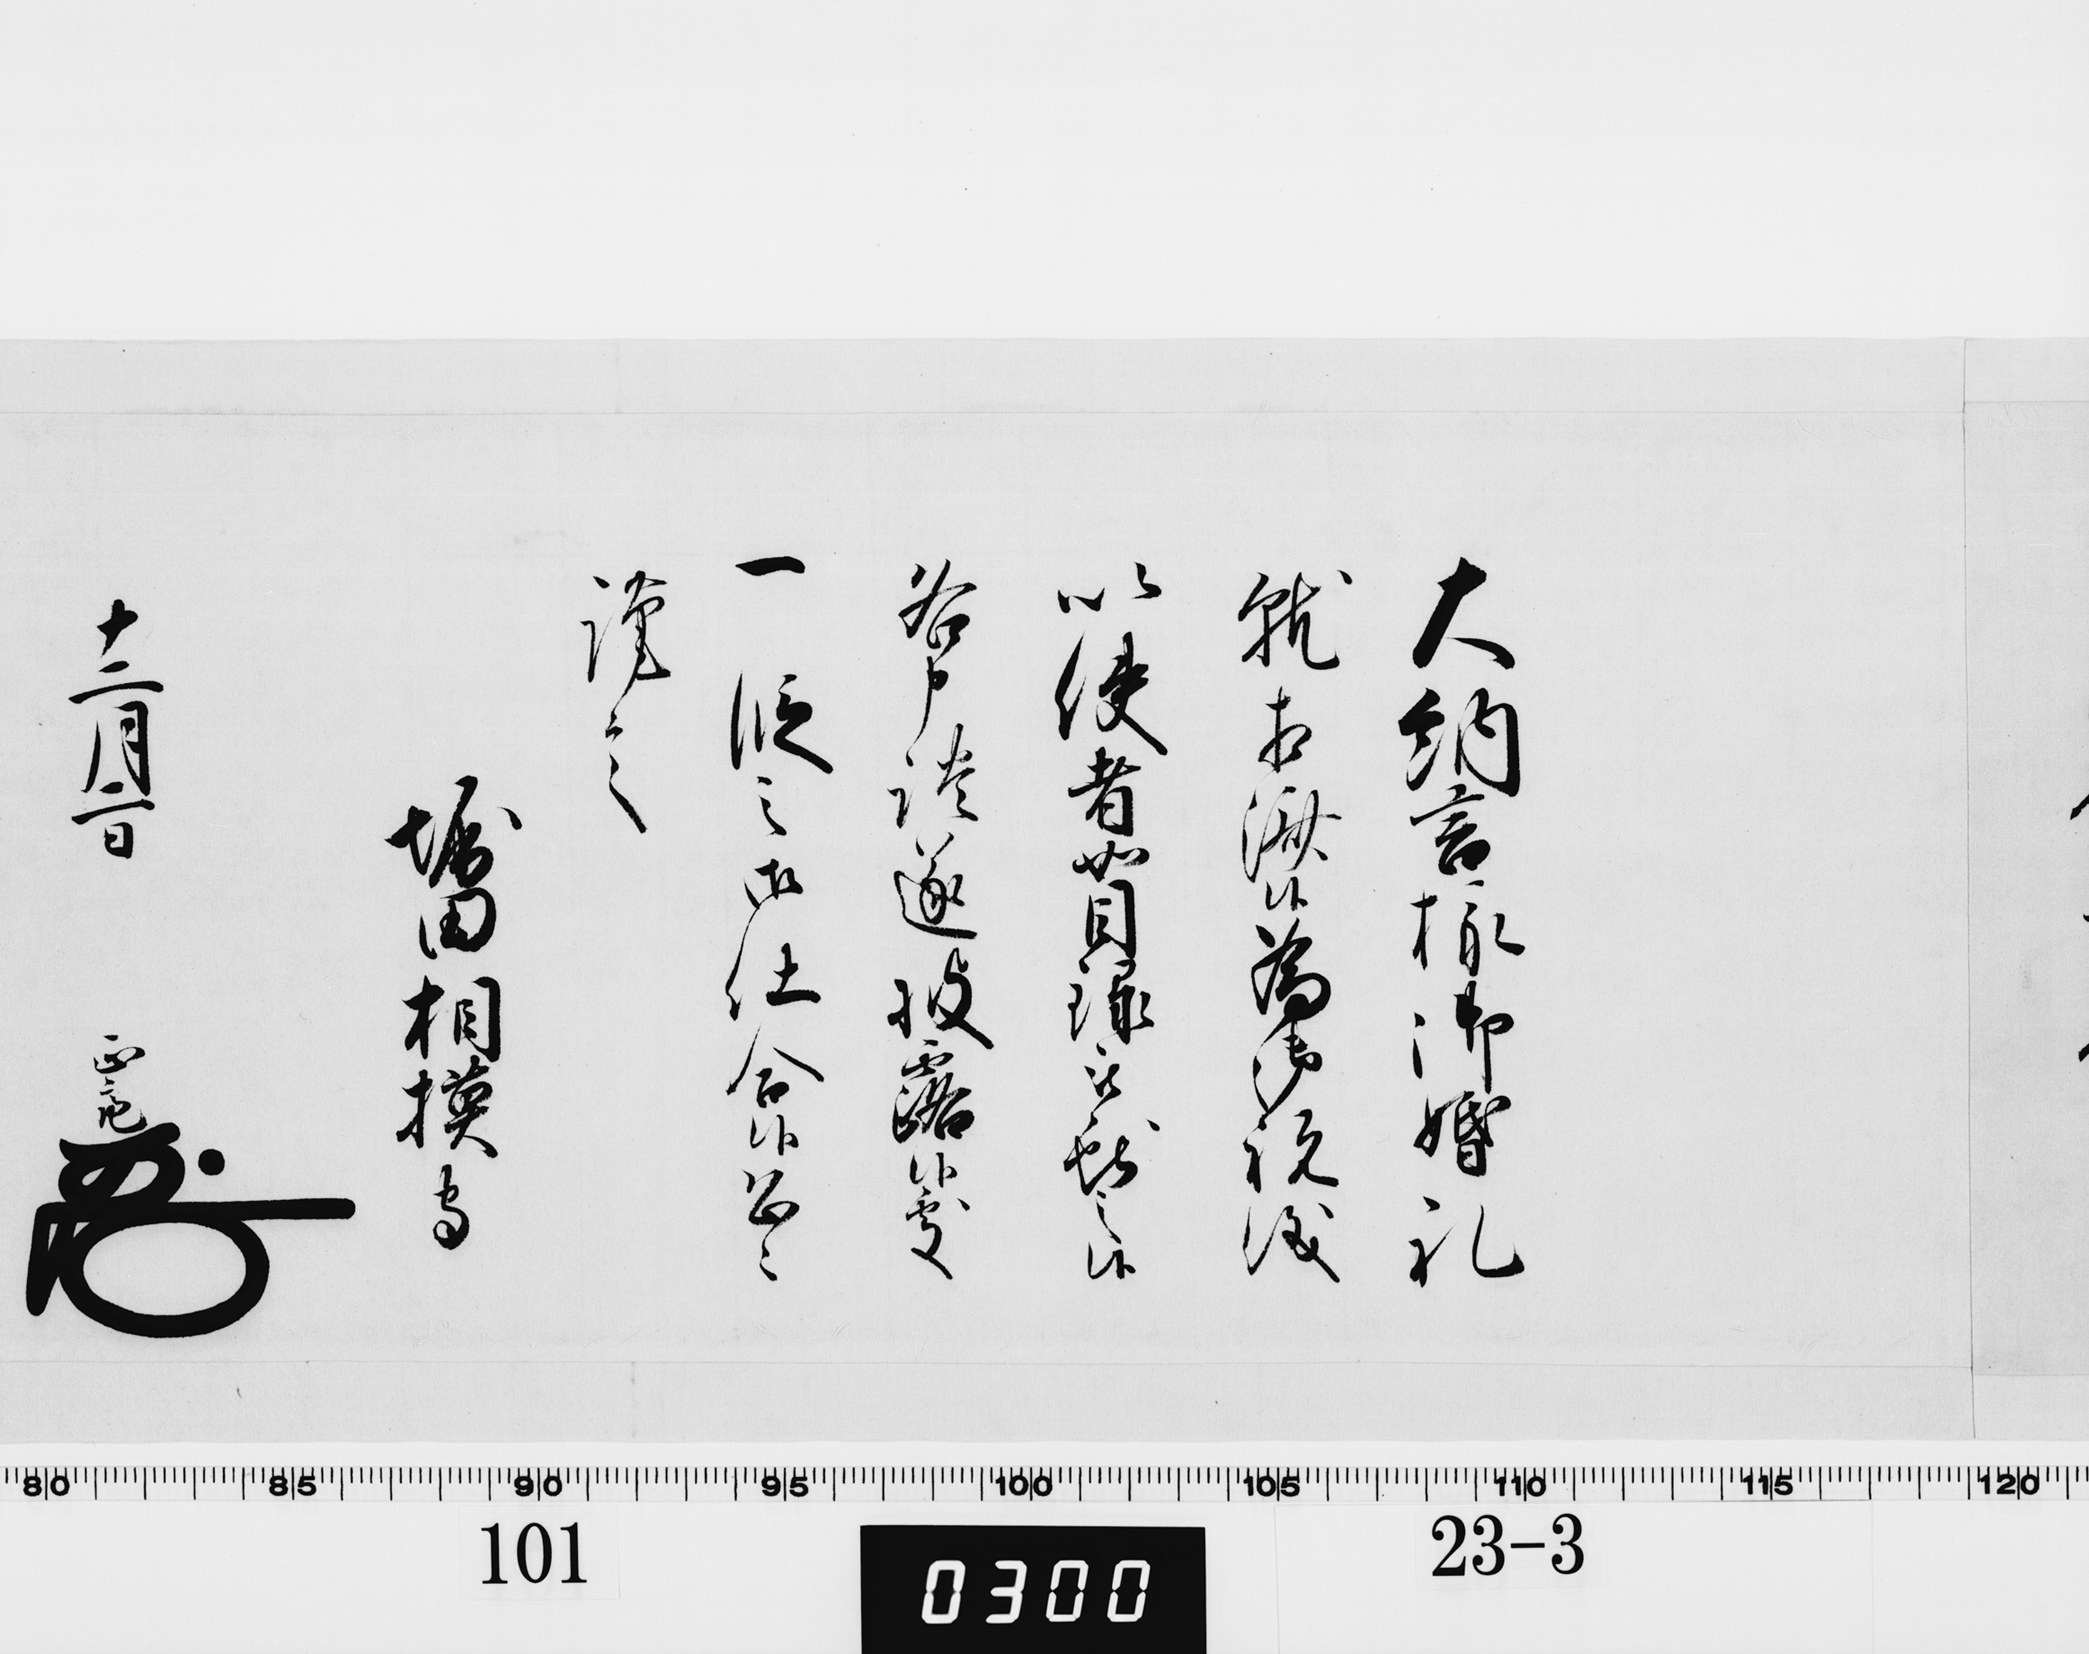 大納言様御婚礼
就相済候為御祝儀
以使者如目録被献之候
各申談遂披露候処
一段之御仕合候恐々
謹言
堀田相模守
十二月二日 正亮
80 85 90 95 100 105 110 115 120
101
0300
23-3